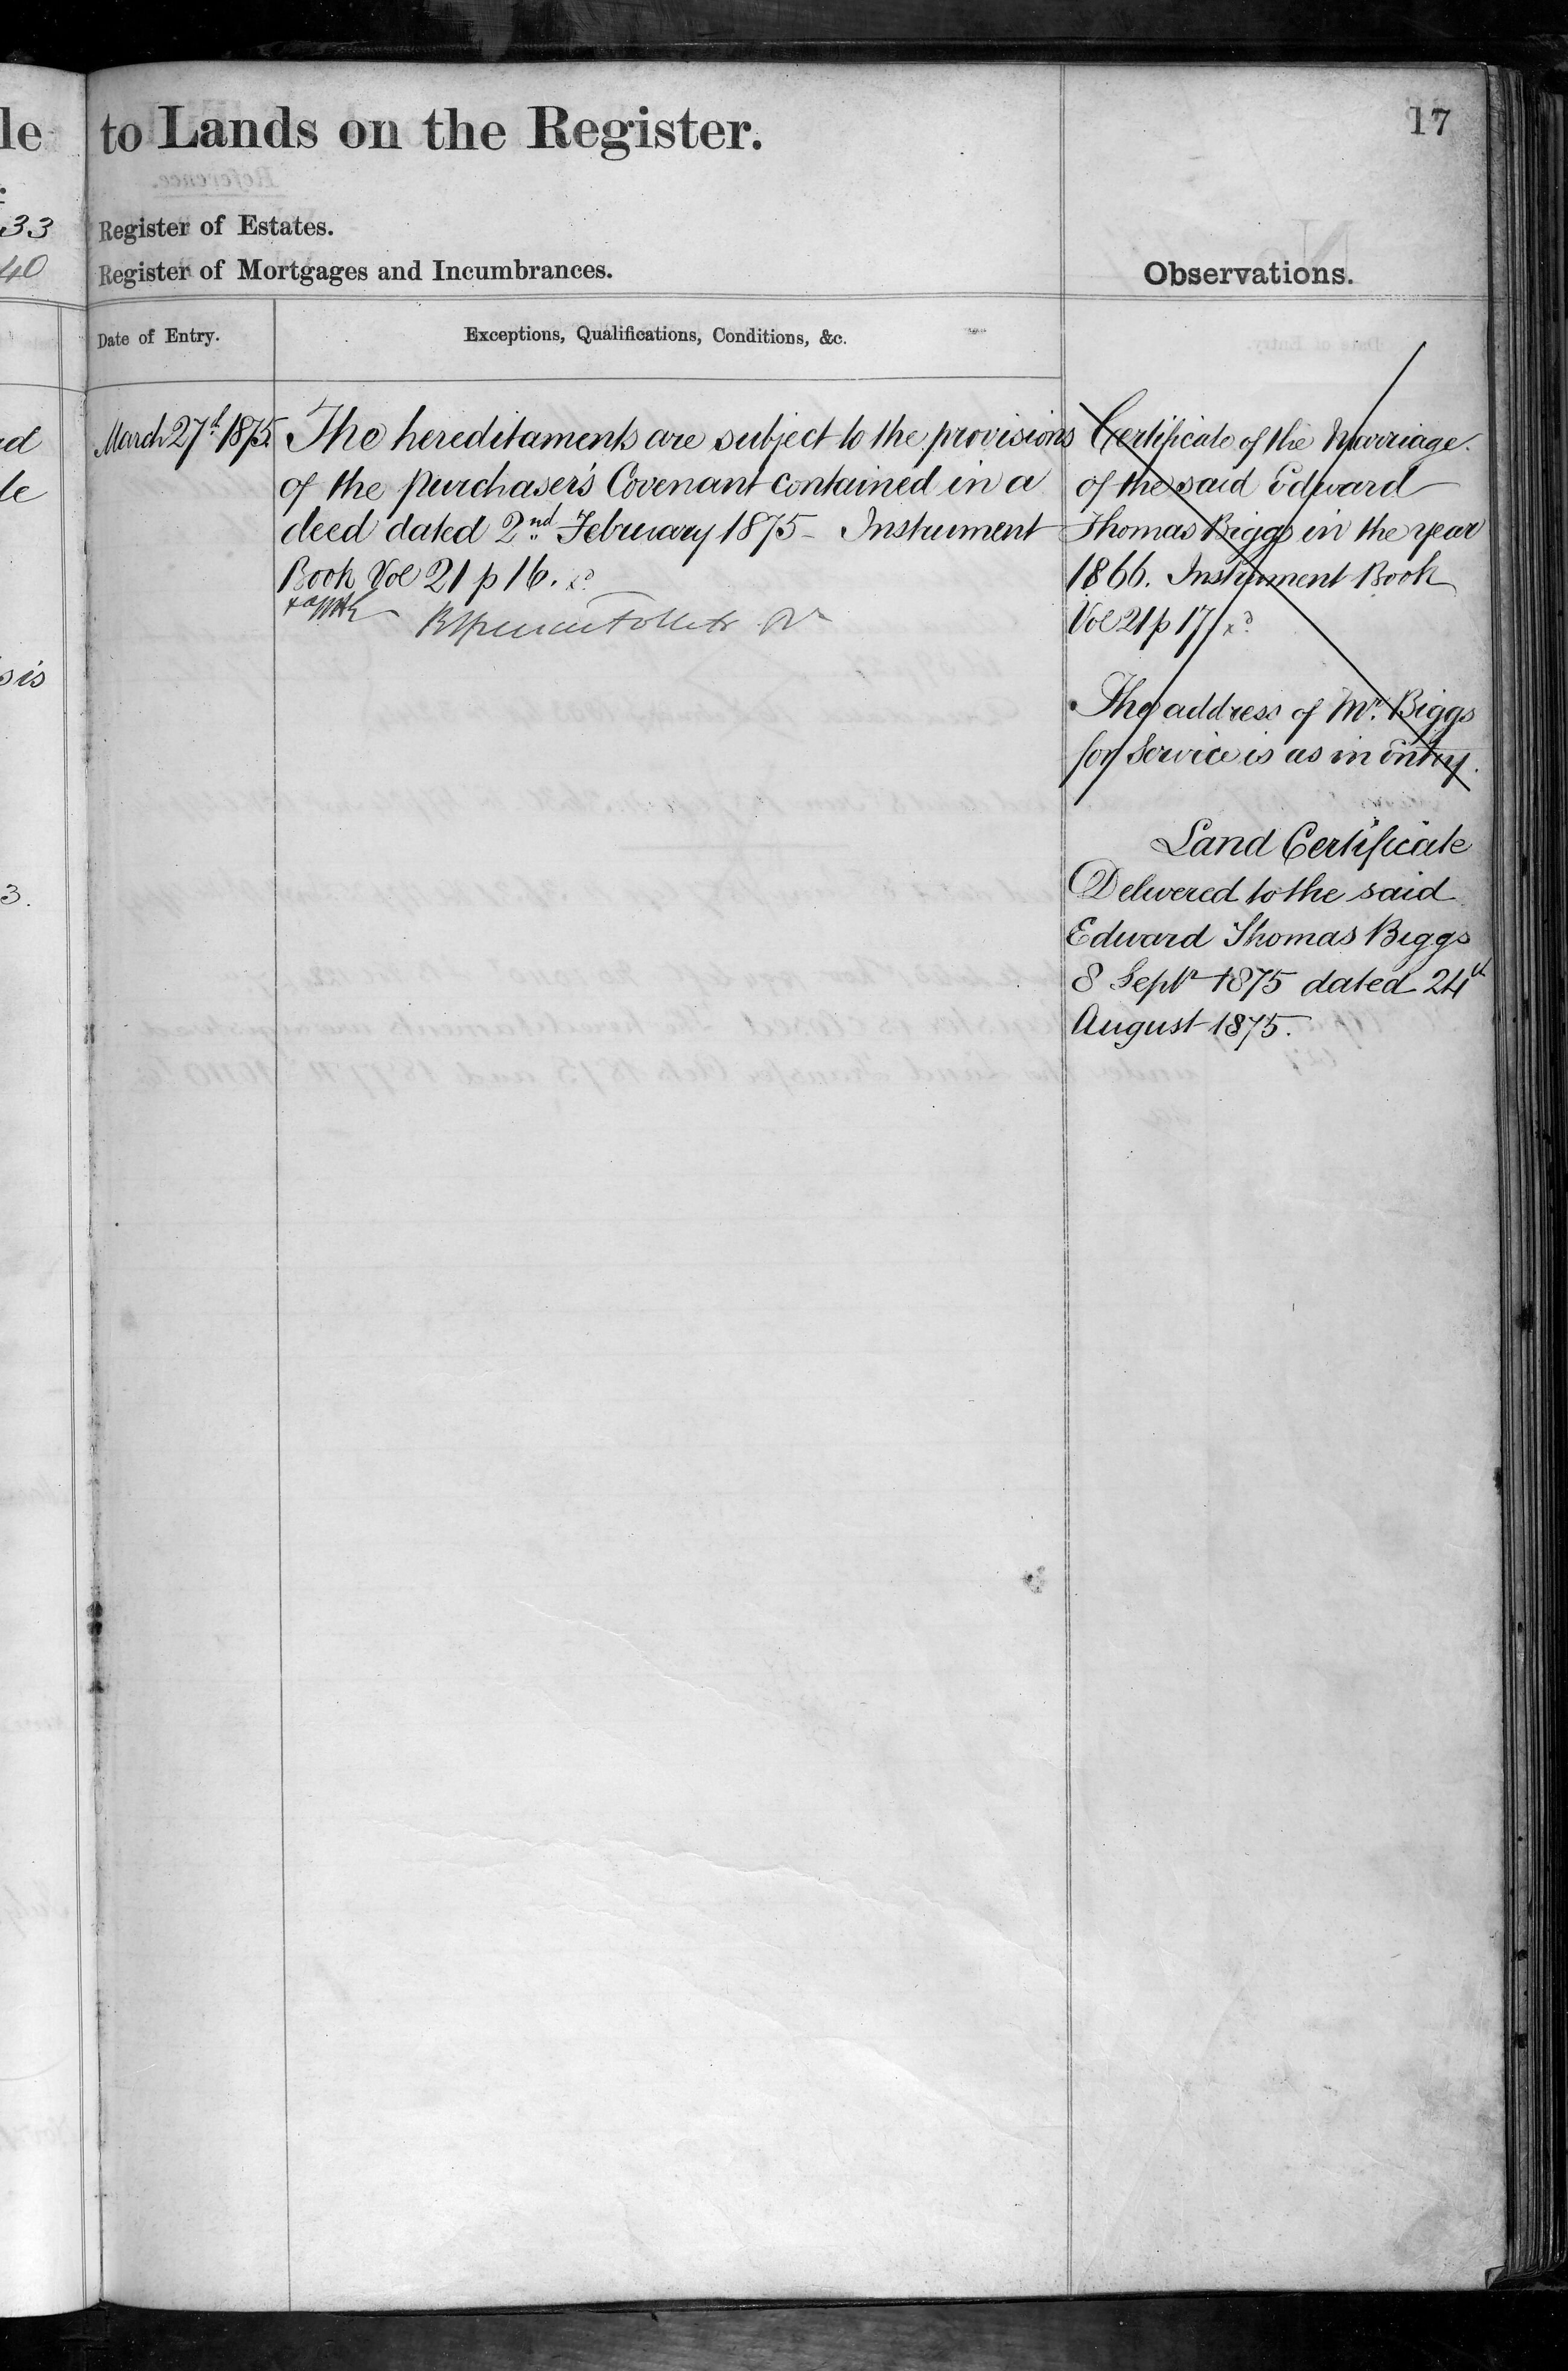 le
33
40
ed
le
sis
3.
to Lands on the Register.
17
Register of Estates.
Register of Mortgages and Incumbrances.
Observations.
Date of Entry.
Exceptions, Qualifications, Conditions, &c.
March 27th 1875.
The hereditaments are subject to the provisions
of the purchaser's Covenant contained in a
deed dated 2nd February 1875 - Instrument
Book Vol 21 p 16. xd
Certificate of the Marriage
of the said Edward
Thomas Biggs in the year
1866. Instrument Book
Vol 21 p 17 xd
The address of Mr. Biggs
for Service is as in Entry.
Land Certificate
Delivered to the said
Edward Thomas Biggs
8 Septr 1875 dated 24th
August 1875.